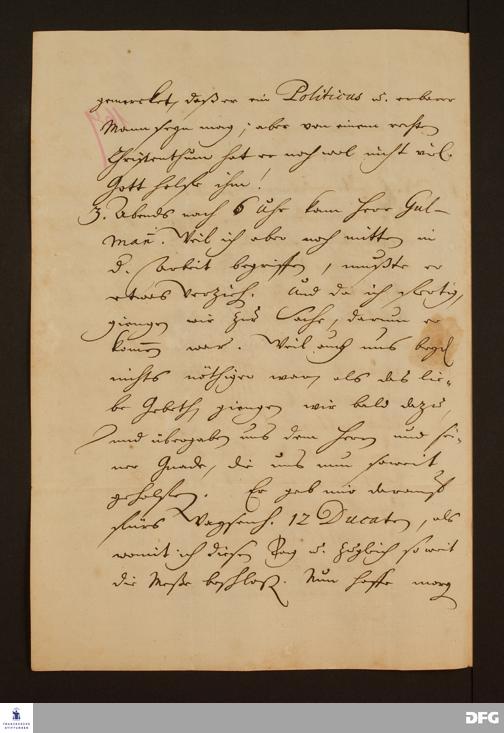 gemercket, daß er ein Politicus u. erbarer
Mann seyn mag; aber von einem rechten
Christenthum hat er noch wol nicht viel.
Gott helfe ihm!
3. Abends nach 6 Uhr kam Herr Gul-
man̄. Weil ich aber noch mitten in
d. Arbeit begriffen, mußte er
etwas verzieh. Und da ich fertig,
giengen wir zur Sache, darum er
kom̄en war. Weil auch uns beyd
nichts nöthiger war, als das lie-
be Gebeth, giengen wir bald dazu,
und übergaben uns dem Herrn und sei-
ner Gnade, die uns nun soweit
geholfen. Er gab mir darauf
fürs Waysenh. 12 Ducaten, als
womit ich diesen Tag u. zugleich so weit
die Meße beschloß. Nun hoffe morg
FRANCKESCHE
STIFTUNGEN
DFG